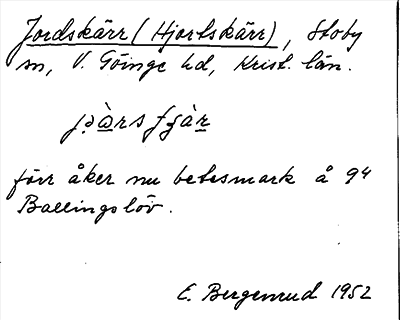 Jordskärr (Hjortskärr), Stoby
sn, V. Göinge hd, Krist. län.
förr åker nu betesmark å 9⁴
Ballingslöv.
E. Bergenrud 1952